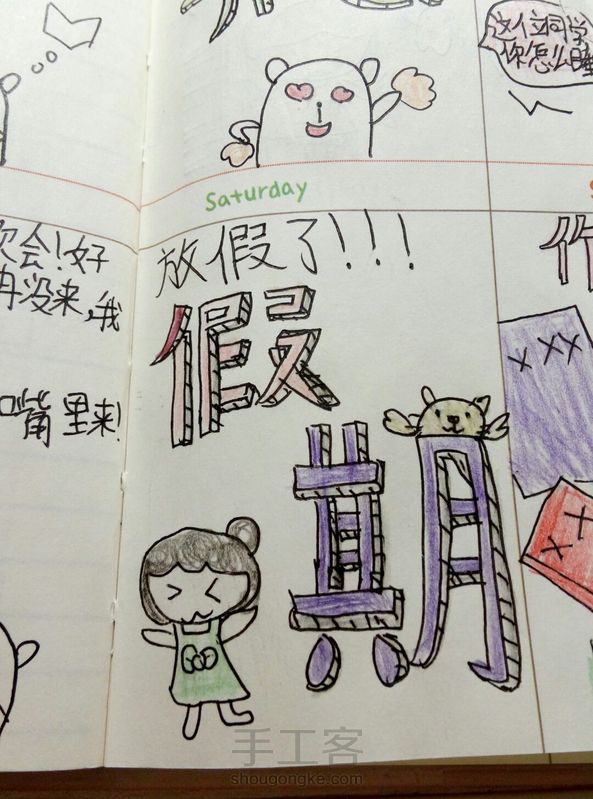 这位同学
你怎么睡
Saturday
放假了!!!
假
期
会!好
没来,哦
嘴里来!
手工客
shougongke.com